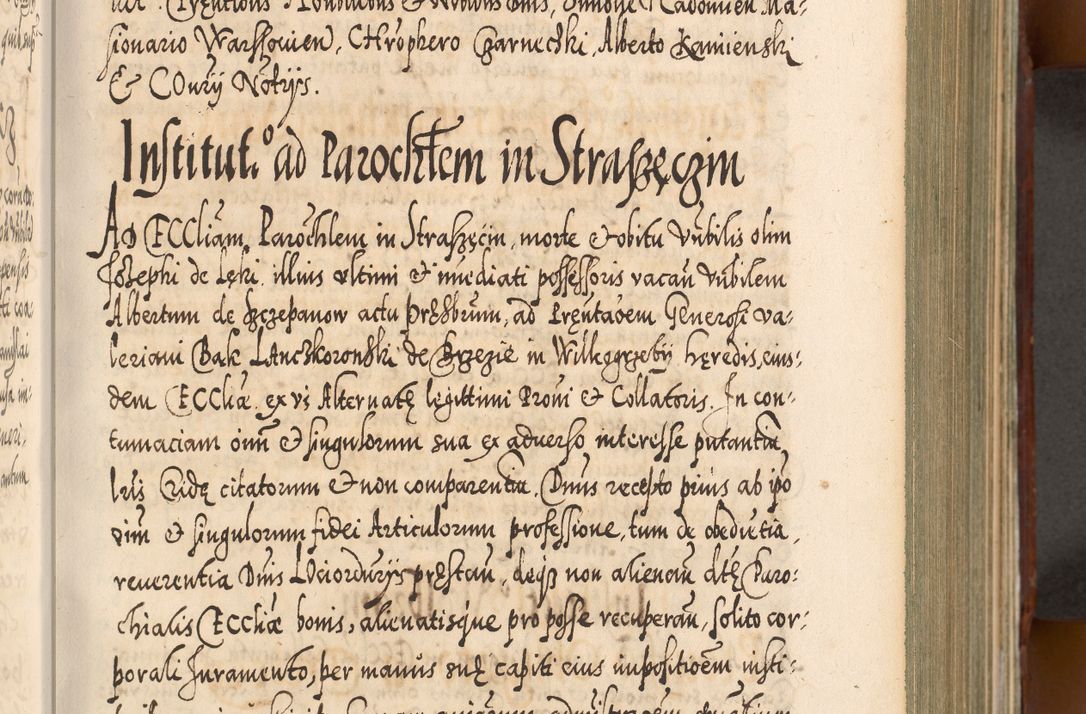 sionario Warssovien, CHrophero Czarnecki, Alberto Kamienski
& COurij Notrijs.
Institut.º ad Parochlem in Strassęczin
AD ECCliam Parochlem in Strassęcin, morte & obitu Vnbilis olim
Josephi de Lęki illius vltimi & im̄ediati possessoris vacan̄ Vnbilem
Albertum de Szczepanow actu Prēsbrum, ad Pręntaōem Generosi Va-
leriani Bąk LAnczkoronski de Brzezie in Willcogrzeby hęredis, eius-
dem ECCliæ ex vi Alternatę legittimi Proni & Collatoris. In con-
tumaciam oim̄ & singulorum sua ex aduerso interesse putantia
lris Eidę citatorum & non comparentia. Dnus recepto prius ab ipo
oim̄ & singulorum fidei Articulorum professione, tum de obedietia,
reuerentia Dnis LOciordurijs pręstan̄, deq3 non alienan̄ dctę Paro-
chialis ECCliæ bonis, alienatisque pro posse recuperan̄, solito cor-
porali Juramento, per manus suę capiti eius impositioēm insti-